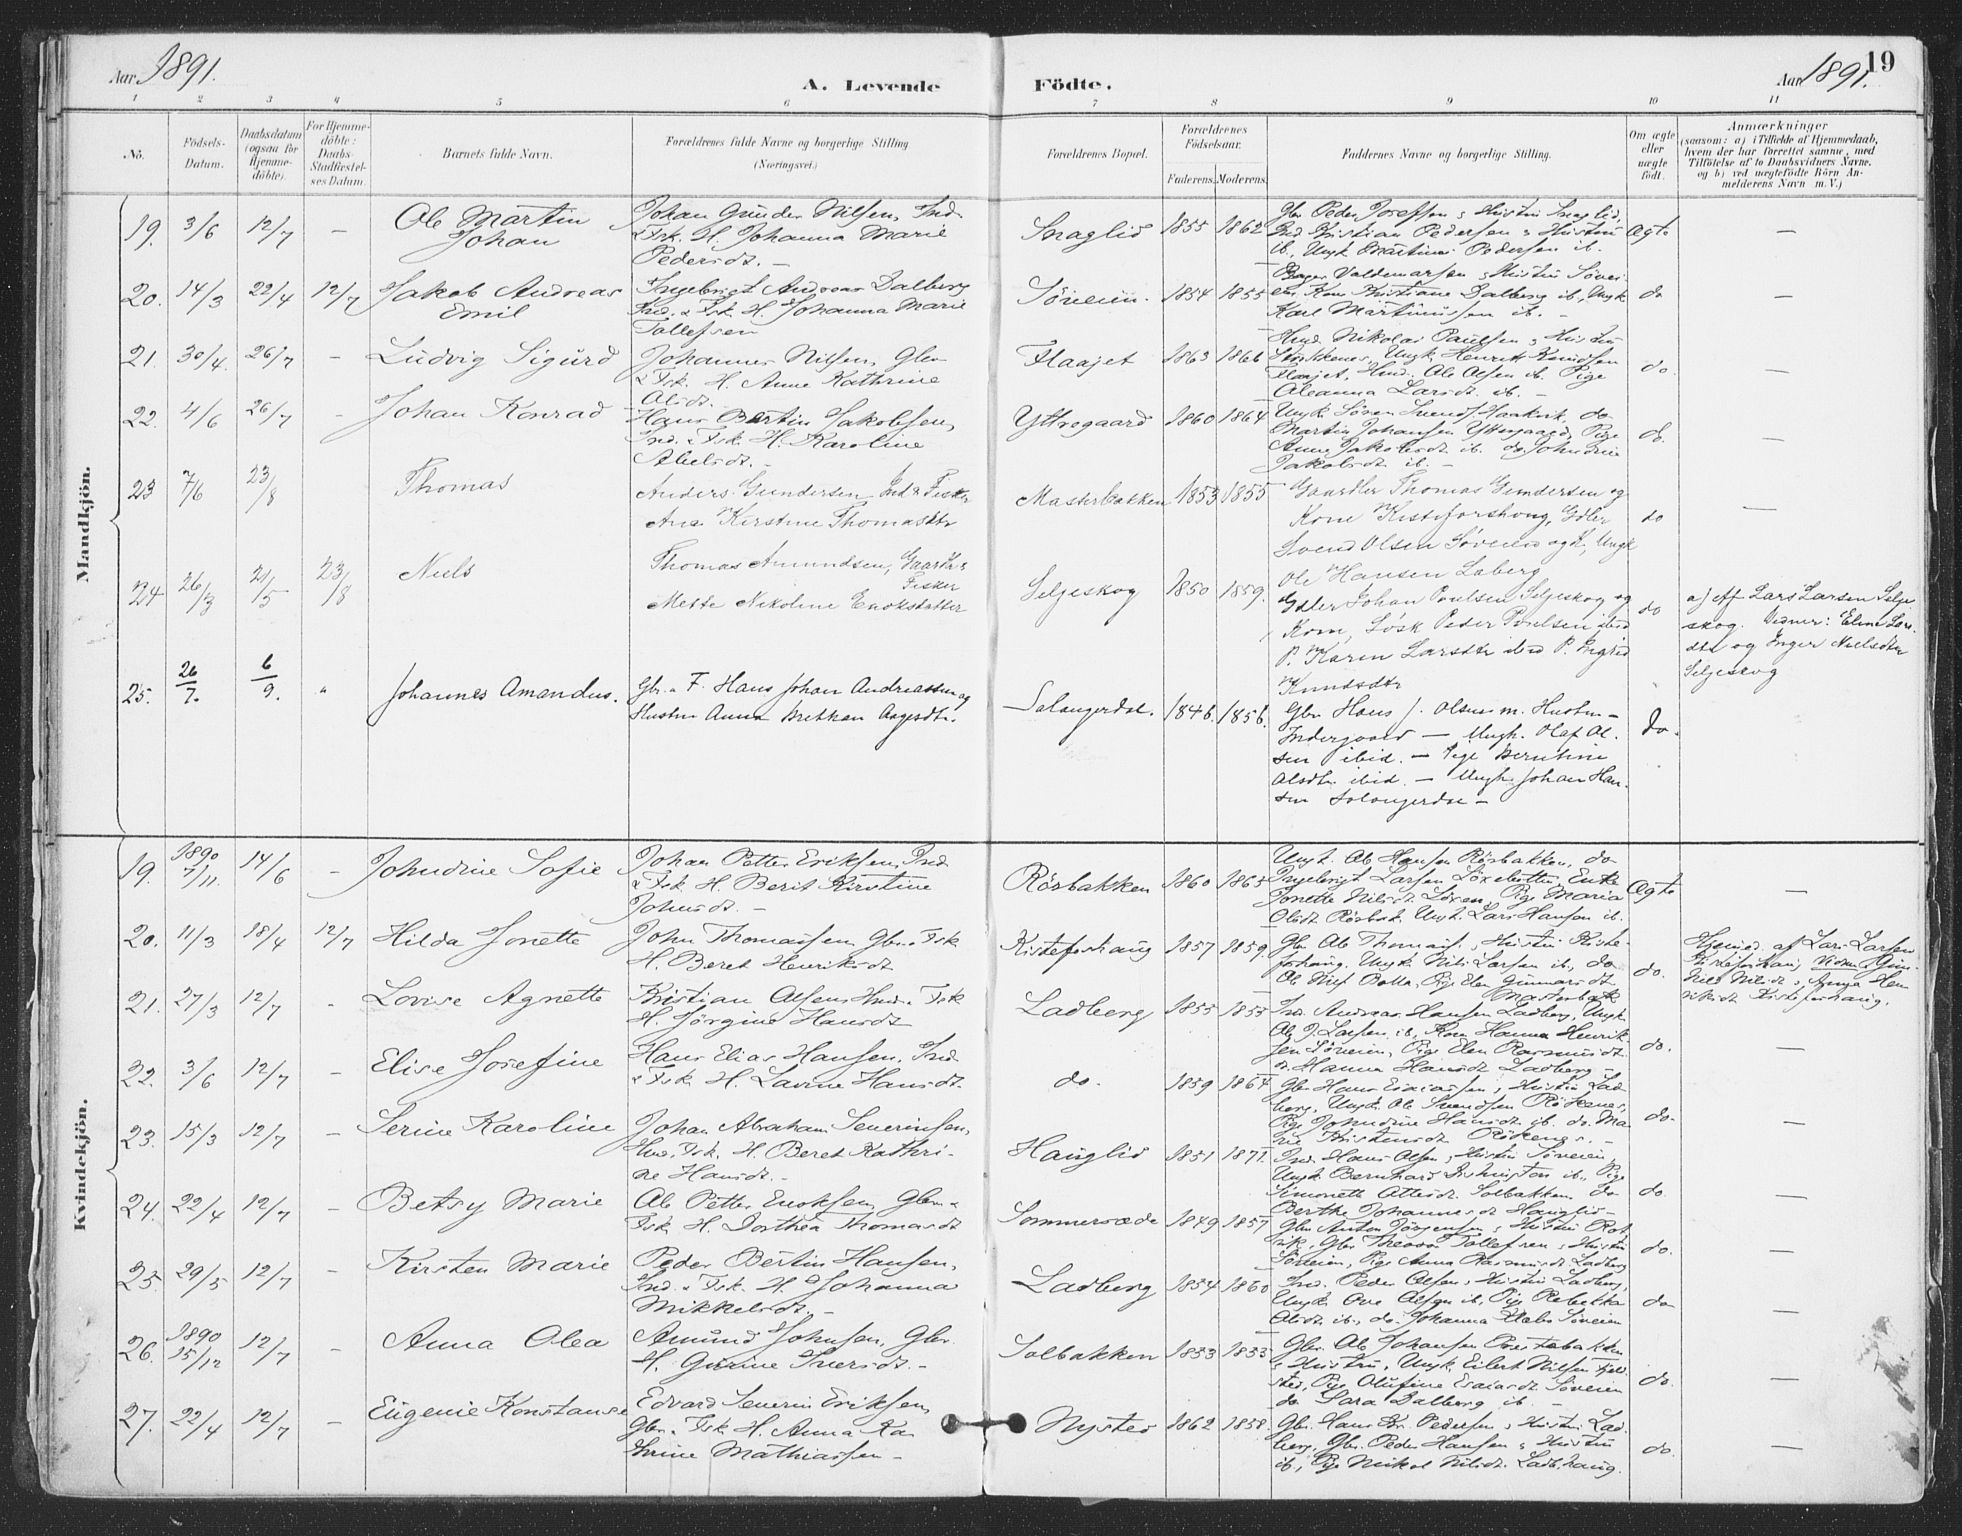 Aar 1891.
A. Levende
Födte.
Aar 1891.
19
1 2 3 4 5 6 7 8 9 10 11
No.
Födsels-Datum.
Daabsdatum (ogsaa for Hjemme-döbte).
For Hjemme-döbte: Daabs-Stadfæstel-ses Datum.
Barnets fulde Navn.
Forældrenes fulde Navne og borgerlige Stilling (Næringsvei.)
Forældrenes Bopæl.
Forældrenes Födselsaar.
Faderens. Moderens.
Faddernes Navne og borgerlige Stilling.
Om ægte eller uægte födt.
Anmærkninger
(saasom: a) i Tilfælde af Hjemmedaab,
hvem der har forrettet samme, med
Tilföielse af to Daabsvidners Navne.
og b) ved uægtefödte Börn An-
melderens Navn m. V.)
Mandkjön.
19. 3/6 12/7 – Ole Martin Johan
Johan Gunder Nilsen, Ind.
& Fsk. H. Johanna Marie
Pedersdt. –
Snaglid 1855 1862
Gbr. Peder Josefsen & Hustru Snaglid,
Ind. Kristian Pedersen & Hustru
ib., Ungk. Martinus Pedersen ib.
Ægte –
20. 14/3 22/4 12/7 Jakob Andreas Emil
Ingebrigt Andreas Dalberg
Ind. & Fsk. H. Johanna Marie
Tollefsen
Söveien. 1854 1855
Valdemarsen & Hustru Söveien
Kone Kristiane Dalberg ib., Ungk.
Karl Martinussen ib. –
do –
21. 30/4. 26/7 – Ludvig Sigurd
Johannes Nilsen, Gbr
& Fsk. H. Anne Kathrine
Olsdt. –
Flaajet 1863 1866
Nikolai Paulsen & Hustru
Ungk. Henrik Knudsen
Flaajet, Ole Olsen ib. Pige
Oleanna Larsdt. ib. –
do. –
22. 4/6 26/7 – Johan Konrad
Hans Bertin Jakobsen,
Ind. & Fsk. H. Karoline
Abelsdt. –
Yttregaard 1860 1864
Ungk. Sören Svends. Haakvik, do
Martin Johansen Yttregaard, Pige
Anne Jakobsdt. ib. do Johndine
Jakobsdt. ib. –
do. –
23 7/6 23/8 Thomas
Anders Gundersen Ind & Fisker
Ane Kirstine Thomasdtr
Masterbakken 1853 1855
Gaardbr Thomas Gundersen og
Kone Kisteforshoug, Gdbr
Svend Olsen Söveien og H, Ungk
Ole Hansen Laberg
do –
24 26/3 21/5 23/8 Niels
Thomas Amundsen, Gaardbr &
Fisker
Mette Nikoline Enoksdatter
Seljeskog 1850 1859.
Gdbr Johan Poulsen Seljeskog og
Kone, Peder Poulsen ibid
P. Karen Larsdtr ibid P. Sigrid
Knudsdtr
do
a) Af Lars Larsen Selje
skog. Vidner: Eline Lars
dtr og Inger Nielsdtr
Seljeskog
25. 26/7. 6/9. " Johannes Amandus.
Gbr. & F. Hans Johan Andreassen og
Hustru Anna Bretkan Aagesdtr.
Salangerdal. 1846. 1856.
Gbr Hans J. Olsen m. Hustru –
Indergaard – Ungk. Olaf Ol-
sen ibid. – Pige Berntine
Olsdtr. ibid. – Ungk. Johan Han-
sen Salangerdal –
do.
Kvindekjön.
19. 1890 7/11. 14/6 – Johndine Sofie
Johan Petter Eriksen, Ind
& Fsk. H. Berit Kirstine
Johnsdt. –
Rösbakken 1860 1865
Ungk. Ole Hansen Rösbakken, do
Ingebrigt Larsen Enke
Jonette Nilsdt. Pige Maria
Olsdt. Rösbak. Ungk. Lars Hansen ib.
Ægte –
20. 11/3 18/4 12/7 Hilda Jonette
John Thomassen Gbr. & Fsk
H. Beret Henriksdt
Kisteforshaug 1857 1859.
Gbr. Ole Thomass. & Hustru Kiste-
forshaug, Ungk. Nils Larsen ib., do
Pige Elen Gunnarsdt
Masterbak
do.
Hjemd. af Lars Larsen
Kisteforshaug Vidner:
Nilsdt. & Anna Hen
riksdt Kisteforshaug.
21. 27/3 12/7 – Lovise Agnette
Kristian Olsen, Ind. & Fsk
H. Jörgine Hansdt
Ladberg 1855 1855
Ind. Andreas Hansen Ladberg, Ungk.
Ole J. Larsen ib, Kone Hanna Henrik-
sen Söveien, Pige Elen Rasmusdt.
& Hanna Hansdt Ladberg –
do. –
22. 3/6 12/7 – Elise Josefine
Hans Elias Hansen, Ind.
& Fsk. H. Lavine Hansdt.
do. 1859 1864
Gbr. Hans Esaiassen, & Hustru Lad
berg, Ungk. Ole Svendsen Rökenes,
Pige Johndine Hansdt ib. do. Ma
rie Kristensdt. Rökenes. –
do. –
23. 15/3 12/7 – Serine Karoline
Johan Abraham Severinsen,
Fsk. H. Beret Kathri-
ne Hansdt. –
Hauglid 1851 1871.
Ind. Hans Olsen, & Hustru Söveien,
Ungk Bernhard ib., Pige
Simonette Ottesdt. Solbakken do
Berthe Johannesdt Hauglid –
do. –
24. 22/4 12/7 – Betsy Marie
Ole Petter Enoksen, Gbr. &
Fsk. H. Dorthea Thomasdt
Sommersæde 1849 1857
Gbr Anton Jörgensen & Hustru
Gbr. Theodor Tollefsen & Hustru
Söveien, Pige Anna Rasmusdt Ladberg
do. –
25. 29/5 12/7 – Kirsten Marie
Peder Bertin Hansen,
Ind. & Fsk. H. Johanna
Mikkelsdt. –
Ladberg 1854 1860
Ind. Peder Olsen, & Hustru Ladberg,
Ungk. Ove Olsen ib, Pige Rebekka
Olsdt. ib., do. Johanna Söveien
do –
26. 1890 15/12 12/7 – Anna Olea
Amund Johnsen, Gbr.
H. Gurine Iversdt. –
Solbakken 1853 1855
Gbr. Ole Johansen
& Hustru, Ungk. Eilert Nilsen Fjeld-
sted, Pige Olufine Esaiasdt. Söveien
do. Sara Dalberg ib. –
do. –
27. 22/4 12/7 – Eugenie Konstanse
Edvard Severin Eriksen
Gbr. & Fsk. H. Anna Ka
thrine Mathiassen –
Nysted 1862 1858.
Gbr. Hans Kr. Pedersen, & Hustru Lad
berg, Gbr. Peder Hansen & Hustru
ib., Pige Nikol. Nilsdt. Ladb. haug.
do. –